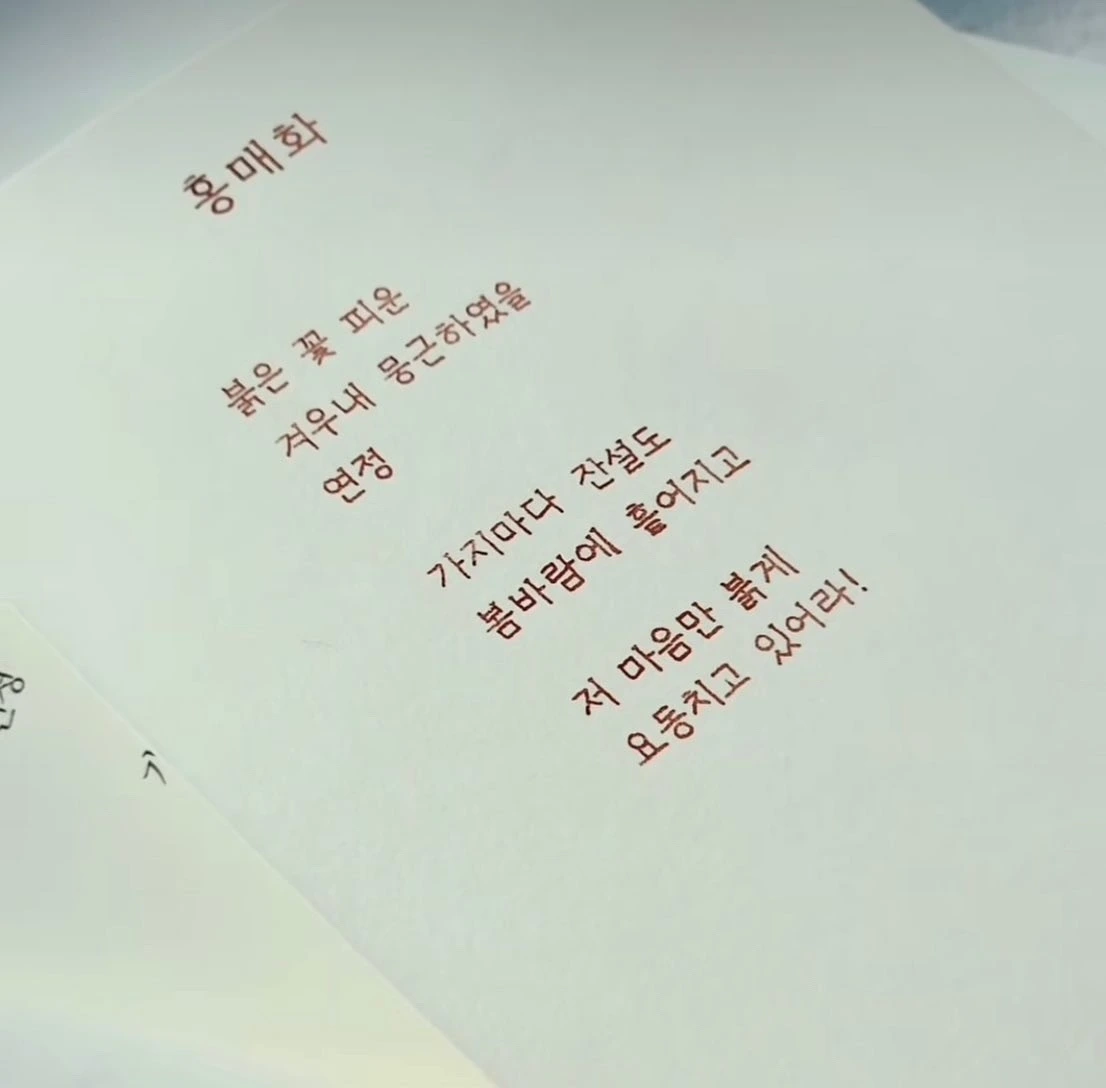 홍매화
붉은 꽃 피운
겨우내 뭉근하였을
연정
가지마다 잔설도
봄바람에 흩어지고
저 마음만 붉게
요동치고 있어라!
가